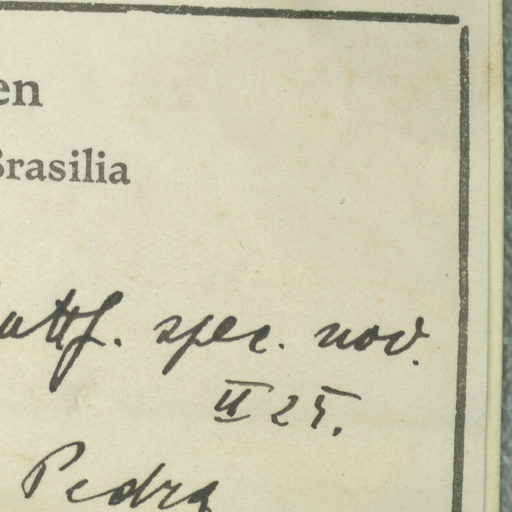 en
Brasilia
attf. spec. nov.
II 25.
Pedra